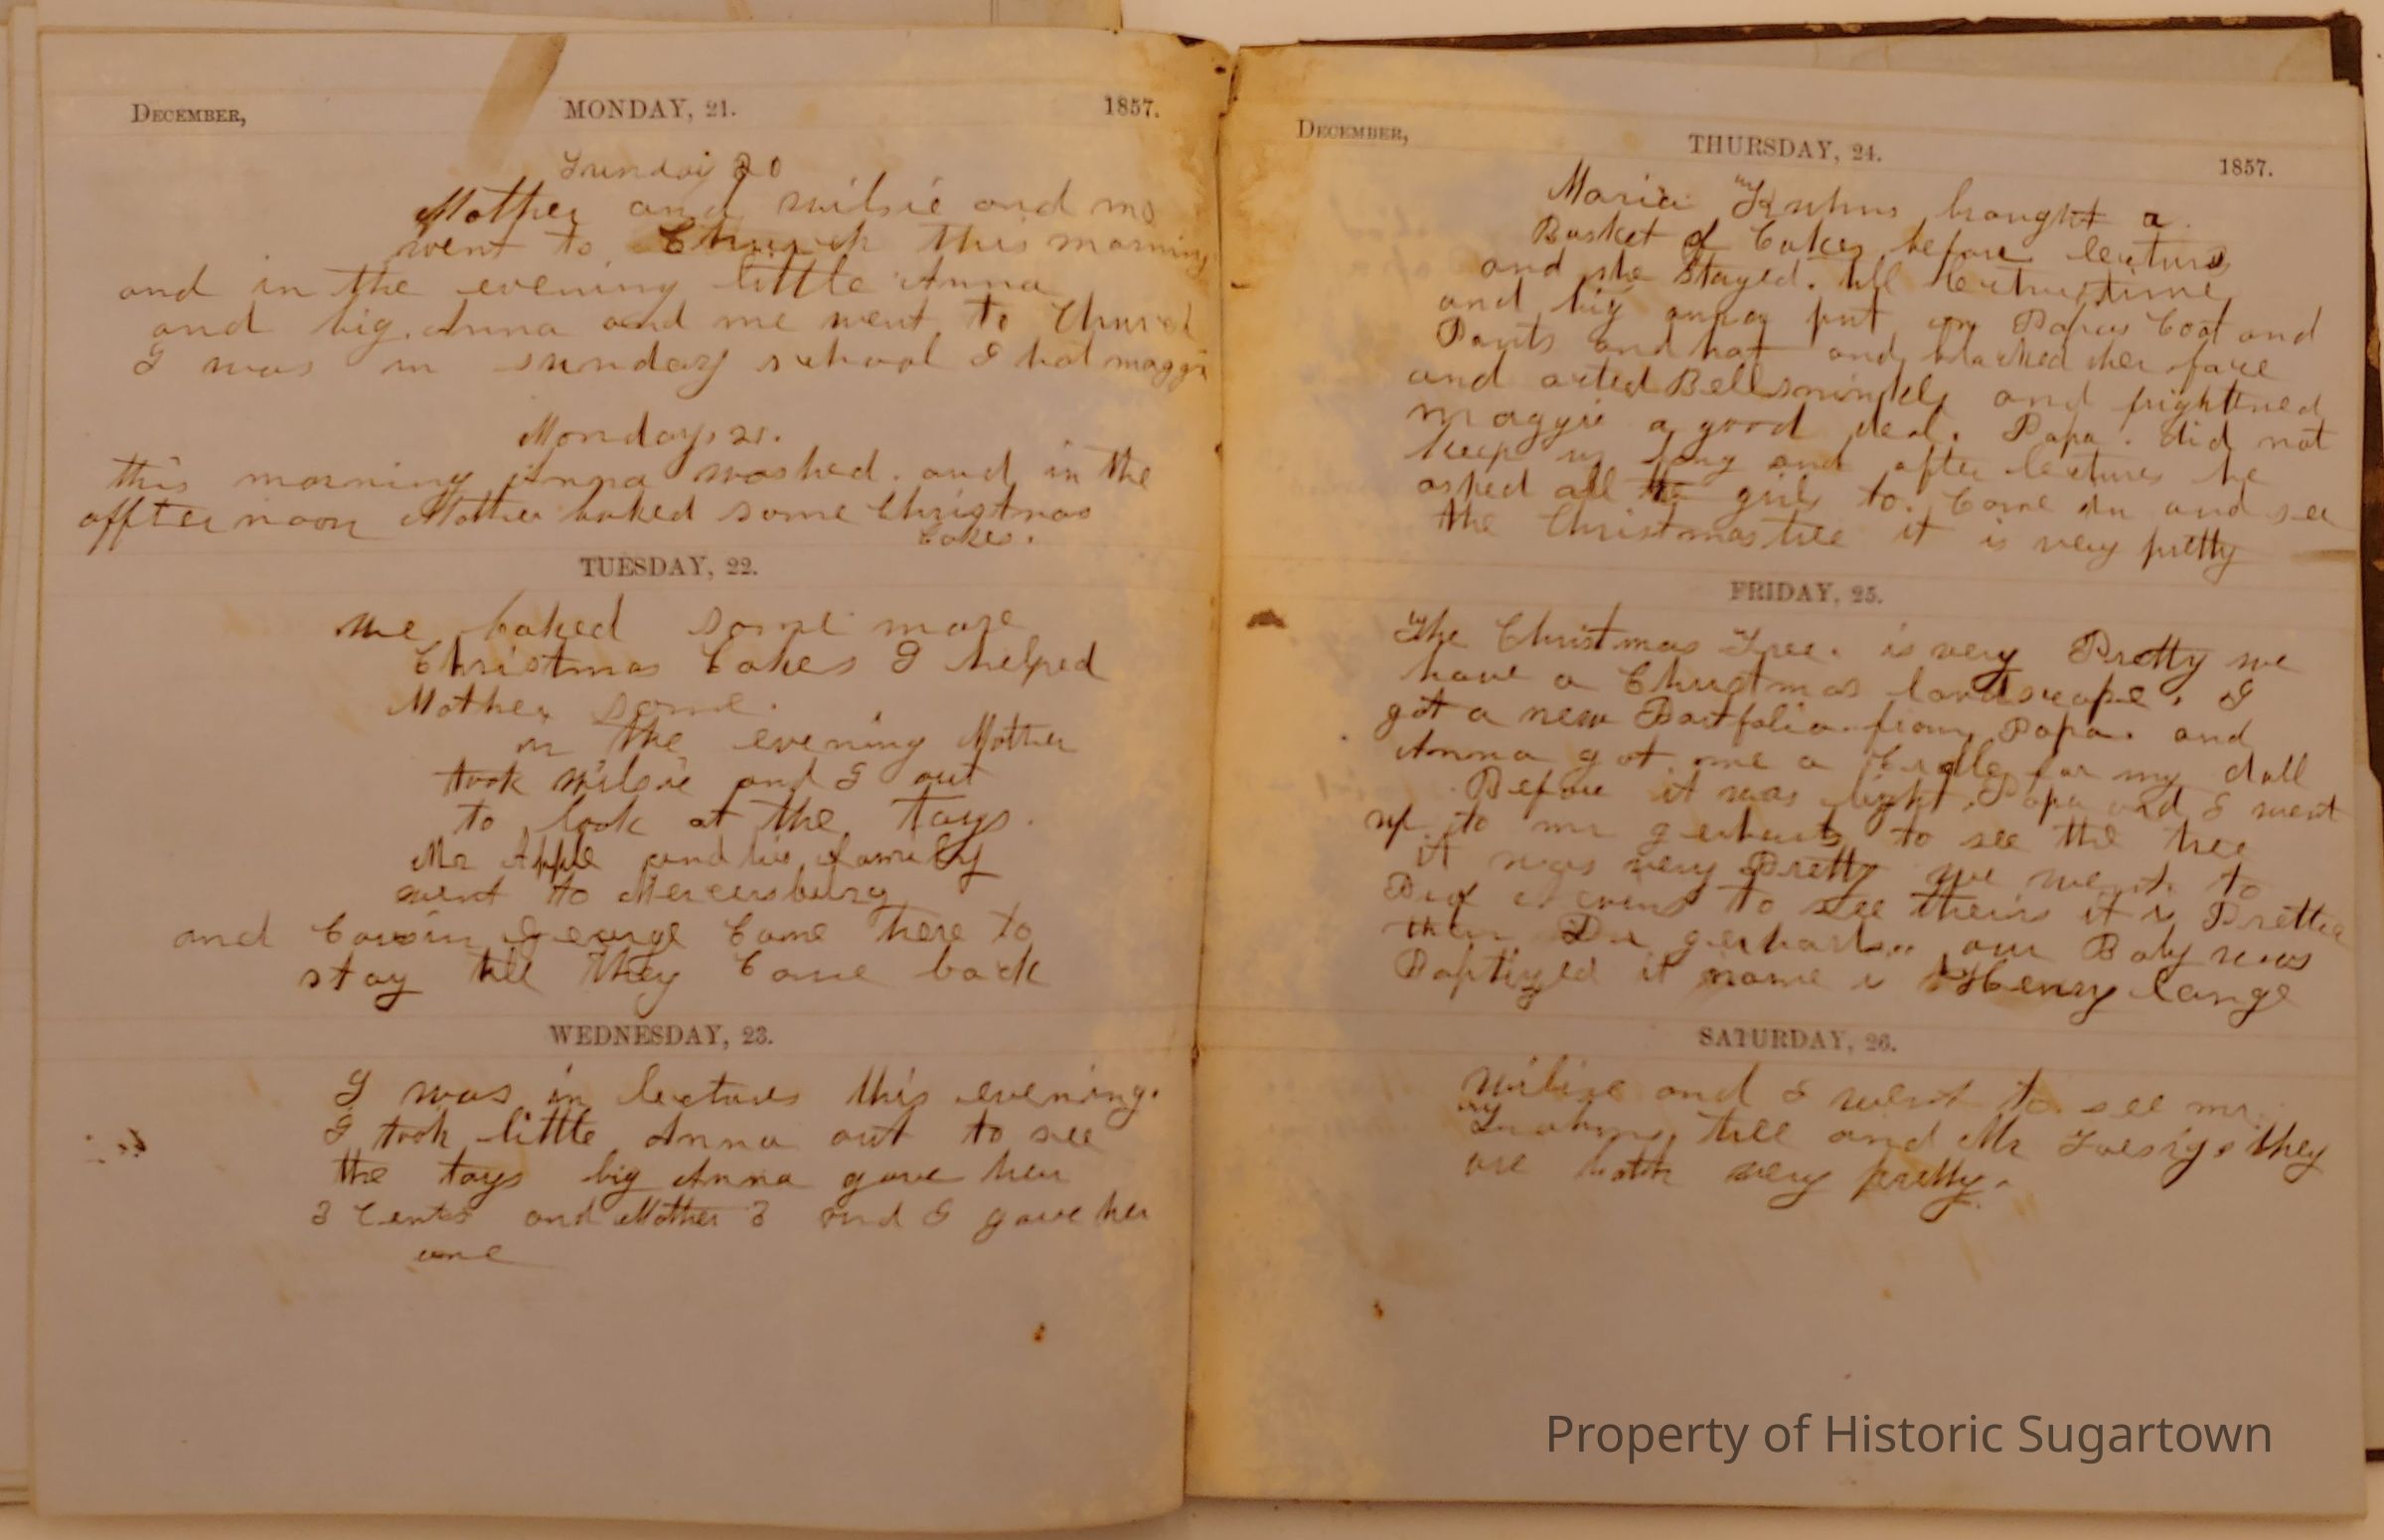 DECEMBER, MONDAY, 21. 1857.
Sunday 20
Mother and wilsie and me
went to Church this morning
and in the evening little Anna
and big Anna and me went to Church
I was in sunday school I hat maggi
Monday 21.
this morning Anna washed. and in the
affternoon Mother baked some Christmas
Cakes.
TUESDAY, 22.
we baked some more
Christmas Cakes I helped
Mother some.
in the evening Mother
took wilsie and I out
to look at the toys.
Mr Apple and his family
went to Mercersburg
and Cousin George Came here to
stay till they Come back
WEDNESDAY, 23.
I was in lectures this evening.
I took little Anna out to see
the toys big Anna gave her
3 Cents and Mother 3 and I gave her
one
DECEMBER, THURSDAY, 24. 1857.
Maria Kuhns brought a
Basket of Cakes before lectures
and she stayed. till lecturetime
and big anna put on Papas Coat and
Pants and hat and blacked her face
and acted Bellsnickle and frightened
maggie a good deal. Papa. did not
keep us long and after lectures he
asked all the girls to. Come in and see
the Christmastree it is very pretty
FRIDAY, 25.
The Christmas Tree. is very Pretty we
have a Christmas landscape. I
got a new Portfolio from Papa. and
Anna got me a for my doll
Before it was light. Papa and I went
up to mr gerharts to see the tree
it was very Pretty we went to
to see theirs it is Prettier
then gerharts.. our Baby was
Baptized it name is Henry lange
SATURDAY, 26.
wilsie and I went to see mr.
tree and Mr they
are both very pretty.
Property of Historic Sugartown